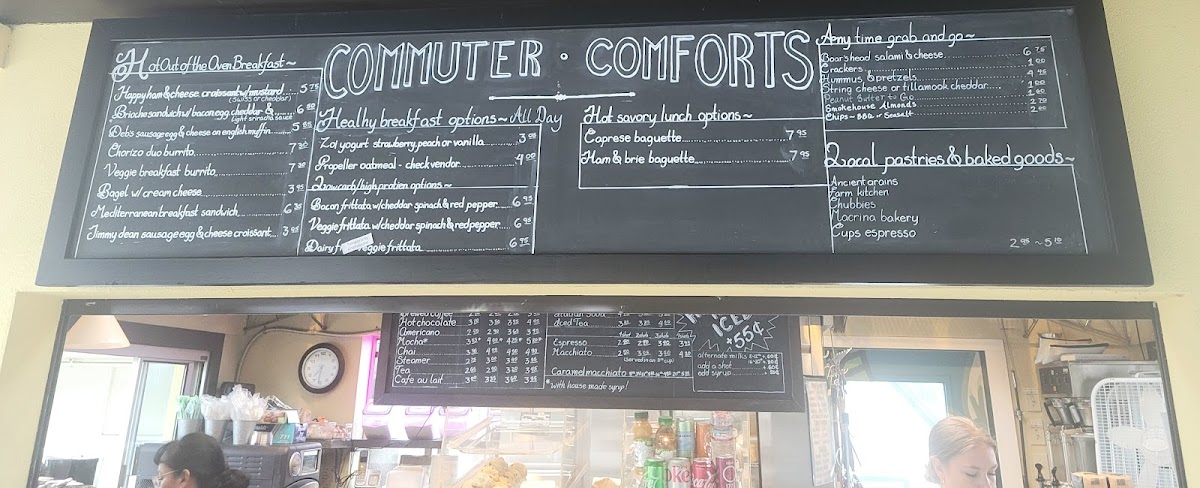 COMMUTER · COMFORTS
Hot Out of the Oven Breakfast~
Happy ham & cheese croissant w/mustard 5 75
(Swiss or cheddar)
Brioche sandwich w/ bacon egg cheddar & 6
light sriracha sauce
Deb's sausage egg & cheese on english muffin 5
Chorizo duo burrito 7
Veggie breakfast burrito 7
Bagel w/ cream cheese 3 95
Mediterranean breakfast sandwich 6
Jimmy dean sausage egg & cheese croissant 3
Healhy breakfast options~ All Day
Zoi yogurt strawberry, peach or vanilla 3
Propeller oatmeal - check vendor 4 00
Low carb/high protien options~
Bacon frittata w/cheddar spinach & red pepper 6 95
Veggie frittata w/cheddar spinach & red pepper 6 95
Dairy veggie frittata 6 75
Hot savory lunch options~
Caprese baguette 7 95
Ham & brie baguette 7 95
Any time grab and go~
Boarshead salami & cheese 6 75
Crackers 1 00
Hummus & pretzels 4
String cheese or tillamook cheddar 1 00
Peanut Butter to Go 1
Smokehouse Almonds 2
Chips~ BBQ or Seasalt 2
Local pastries & baked goods~
Ancient grains
Farm kitchen
Chubbies
Macrina bakery
Cups espresso
2 95 ~ 5
Brewed coffee
Hot chocolate
Americano
Mocha*
Chai
Steamer
Tea
Cafe au lait
Italian Soda
Iced Tea
Espresso
Macchiato
Caramel macchiato
*with house made syrup!
ICED
+55¢
alternate milks
add a shot
add syrup